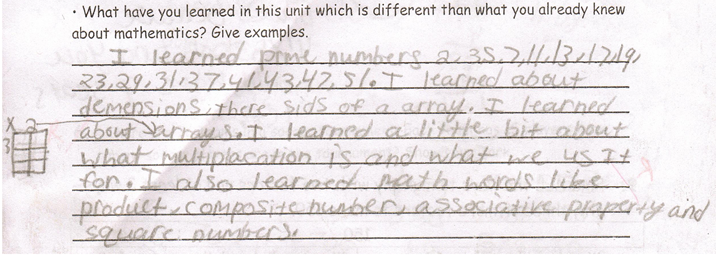 · What have you learned in this unit which is different than what you already knew
about mathematics? Give examples.
I learned prime numbers 2, 35,7,11,13,17,19,
23,29,31,37,41,43,47,51. I learned about
demensions, there sids of a array. I learned
X 2 about arrays. I learned a little bit about
3 what multiplacation is and what we us It
for. I also learned math words like
product, composite number, associative property and
square numbers.